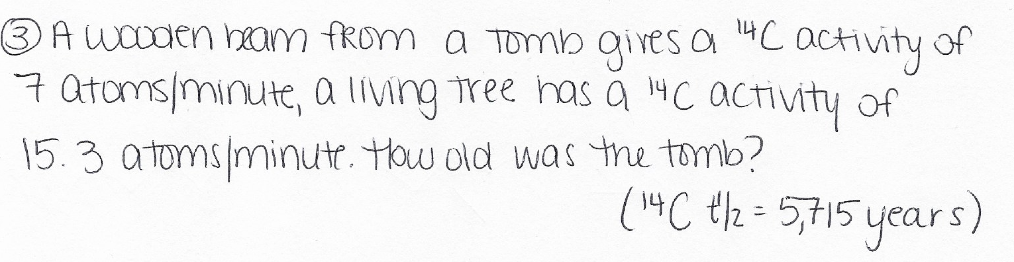 ③ A wooden beam from a tomb gives a ¹⁴C activity of
7 atoms/minute, a living tree has a ¹⁴C activity of
15.3 atoms/minute. How old was the tomb?
(¹⁴C t½ = 5,715 years)